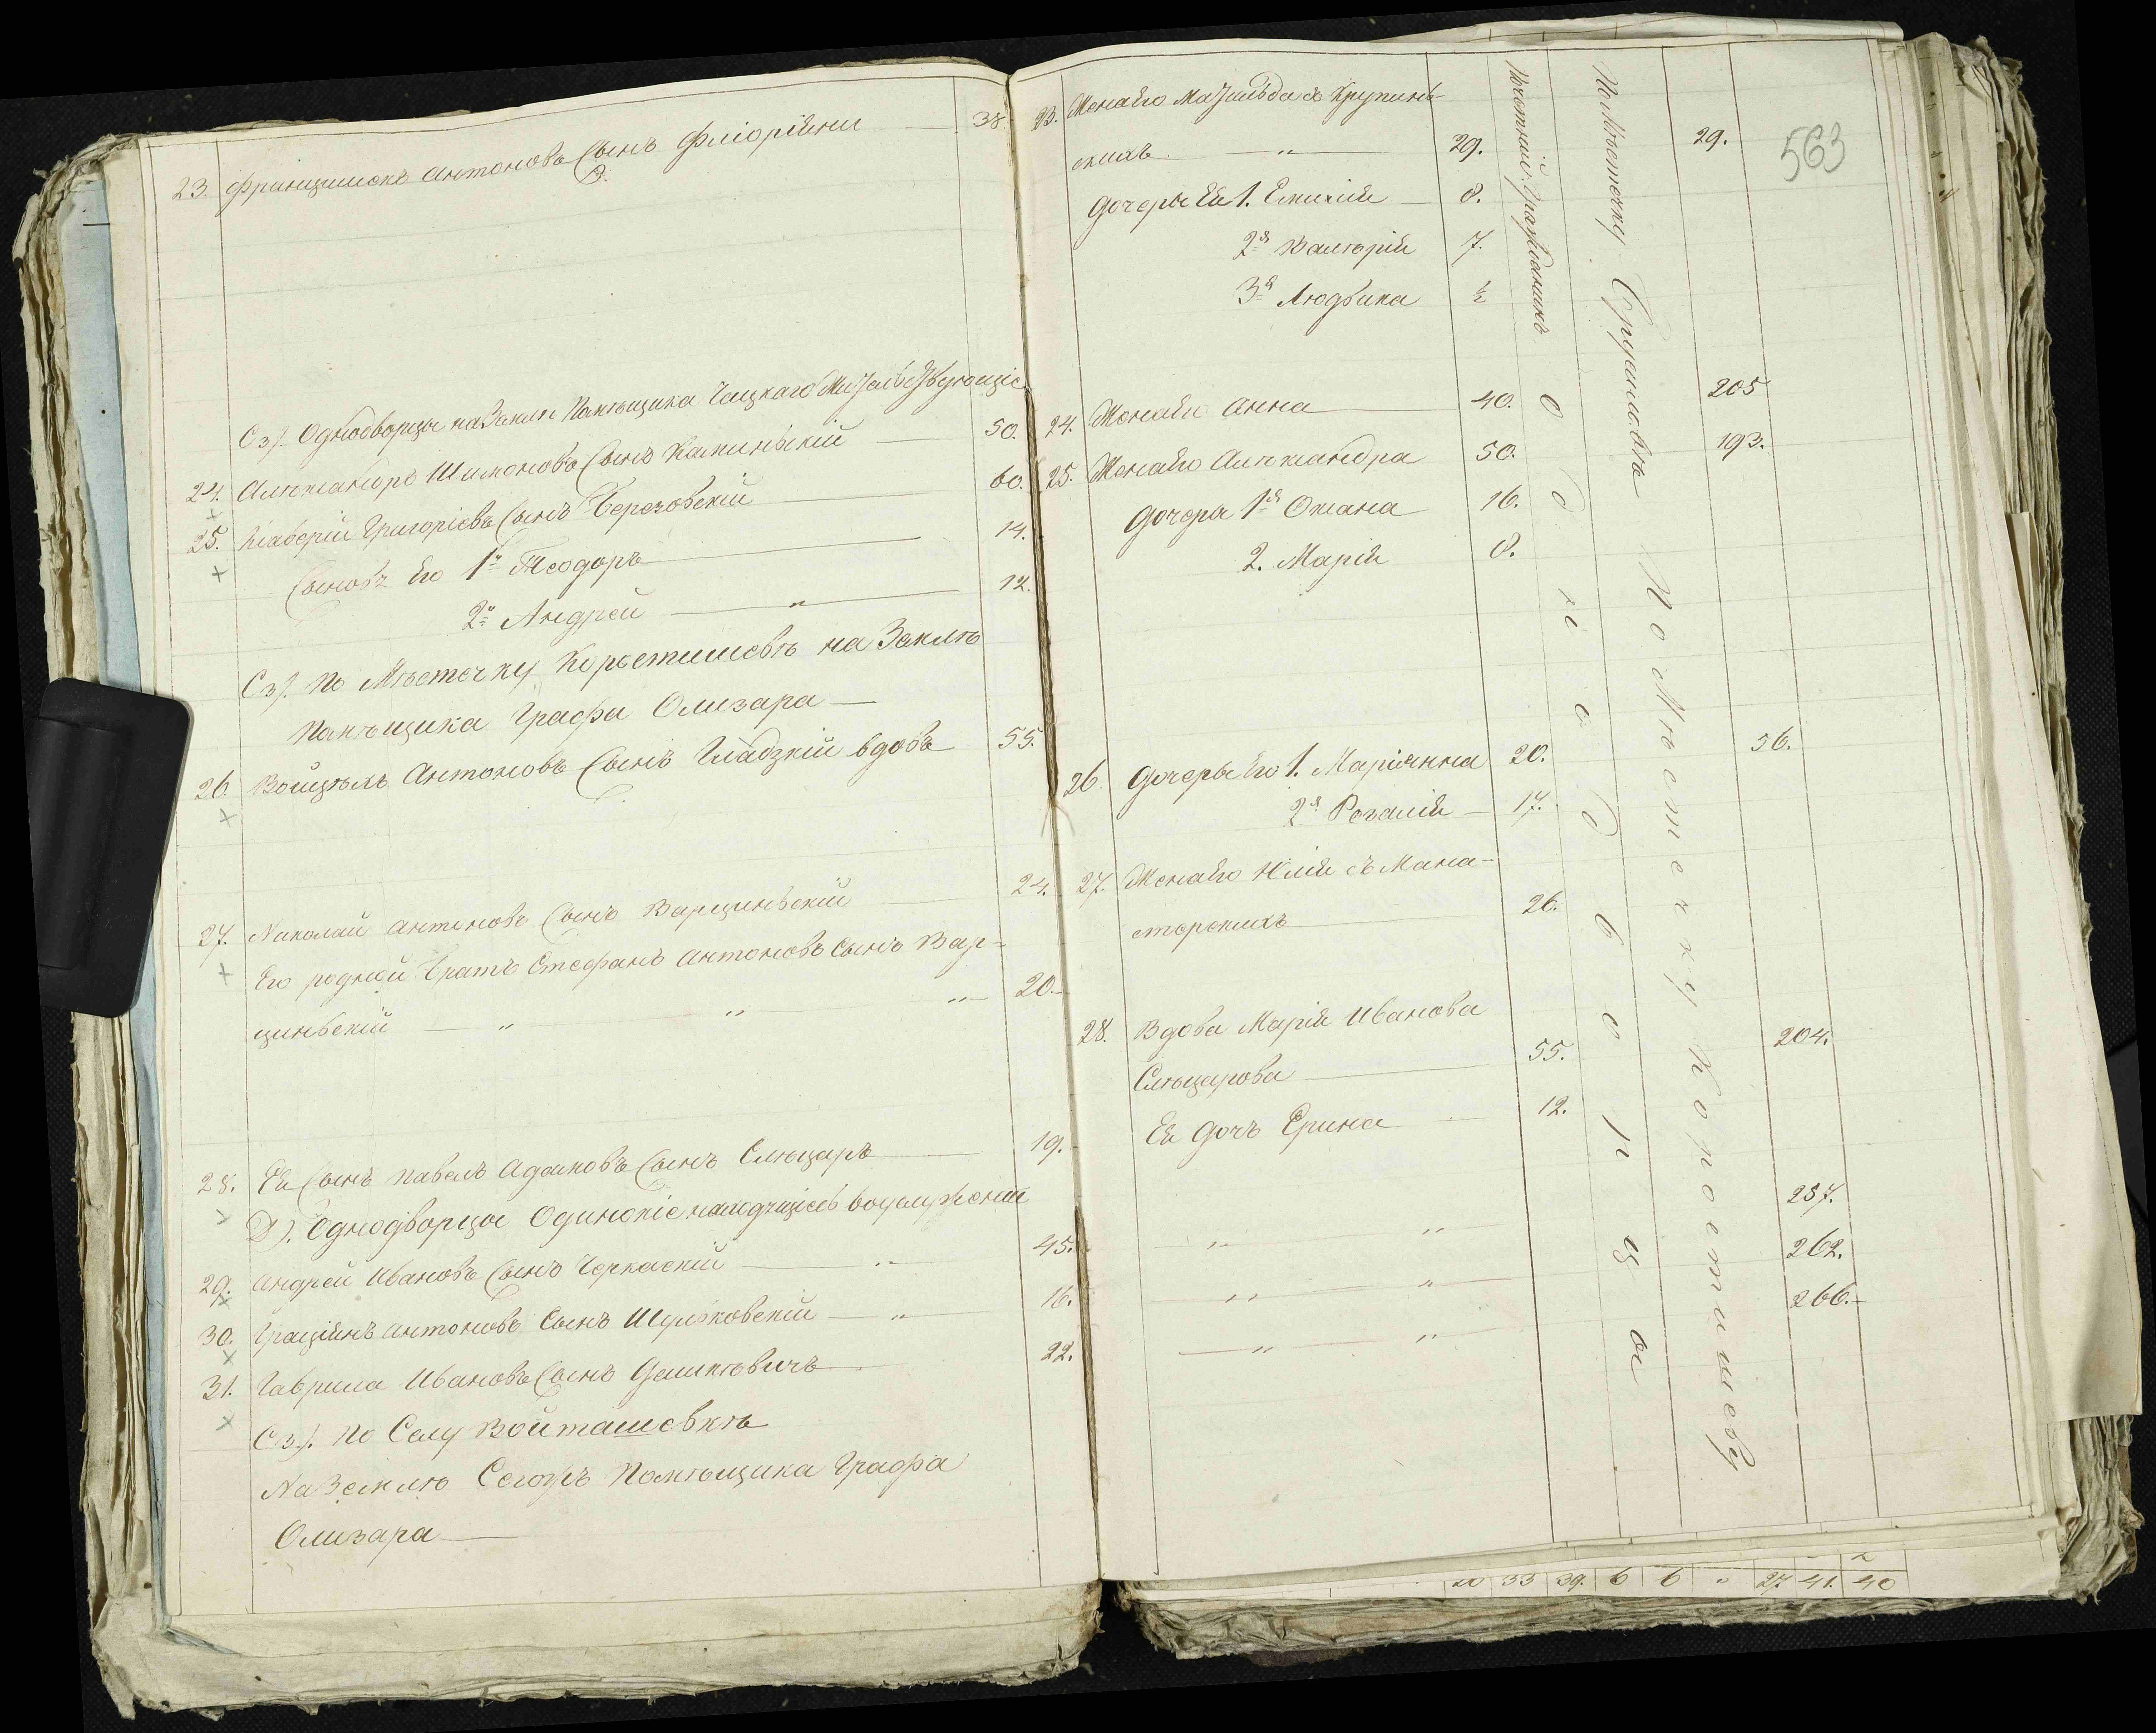 23. Францишекъ Антоновъ Сынъ Фліорійни 38
Сз). Однодворцы на Земли Помѣщика Чацкаго
24. Александръ Шимоновъ Сынъ Каминьскій — 50.
25. Ксаверій Григоріевъ Сынъ Березовскій — 60.
Сыновѣ Его 1й Теодоръ — 14.
2й Андрей — " — 12.
Сз). По Мѣстечку Коростишевѣ на Землѣ
Помѣщика Графа Олизара —
26. Войцѣхъ Антоновъ Сынъ Гладзкій вдовъ 55.
27. Николай Антоновъ Сынъ Варциньскій — 24.
Его родной братъ Стефанъ Антоновъ Сынъ Вар-
циньскій — " " " — 20.
28. Ея Сынъ Павелъ Адамовъ Сынъ Слюцаръ — 19.
Д). Однодворцы Одинокіе находящіесь воуслуженіи
29. Андрей Ивановъ Сынъ Черкаскій — " 45.
30. Граціянъ Антоновъ Сынъ Шулковскій — " — 16.
31. Гаврила Ивановъ Сынъ Дашкѣвичъ — 22.
Сз). По Селу Войташевкѣ
На Землю Сегожъ Помѣщика Графа
Олизара —
563
23. Жена Его Матильда съ Крупинь-
скихъ — " — 29. 29.
Дочеры Ея 1. Емилія — 8.
2я Валѣрія 7.
3я Людвика ½
24. Жена Его Анна — 40. 205
25. Жена Его Алѣксандра 50. 193.
Дочеры 1я Оксана 16.
2. Марія 8.
26. Дочеры Его 1. Маріянна 20. 56.
2я Розалія — 17.
27. Жена Его Юлія съ Мана-
стерскихъ — 26.
28. Вдова Марія Иванова
Слюцарова — 55. 204.
Ея Дочь Ерина — 12.
" " 257.
" " 262.
" " 266.
Почетный Гражданинъ
Однодворцы
По Мѣстечку Брусиловѣ
По Мѣстечку Коростишеву
33 39. 6 6 " 27 41. 40